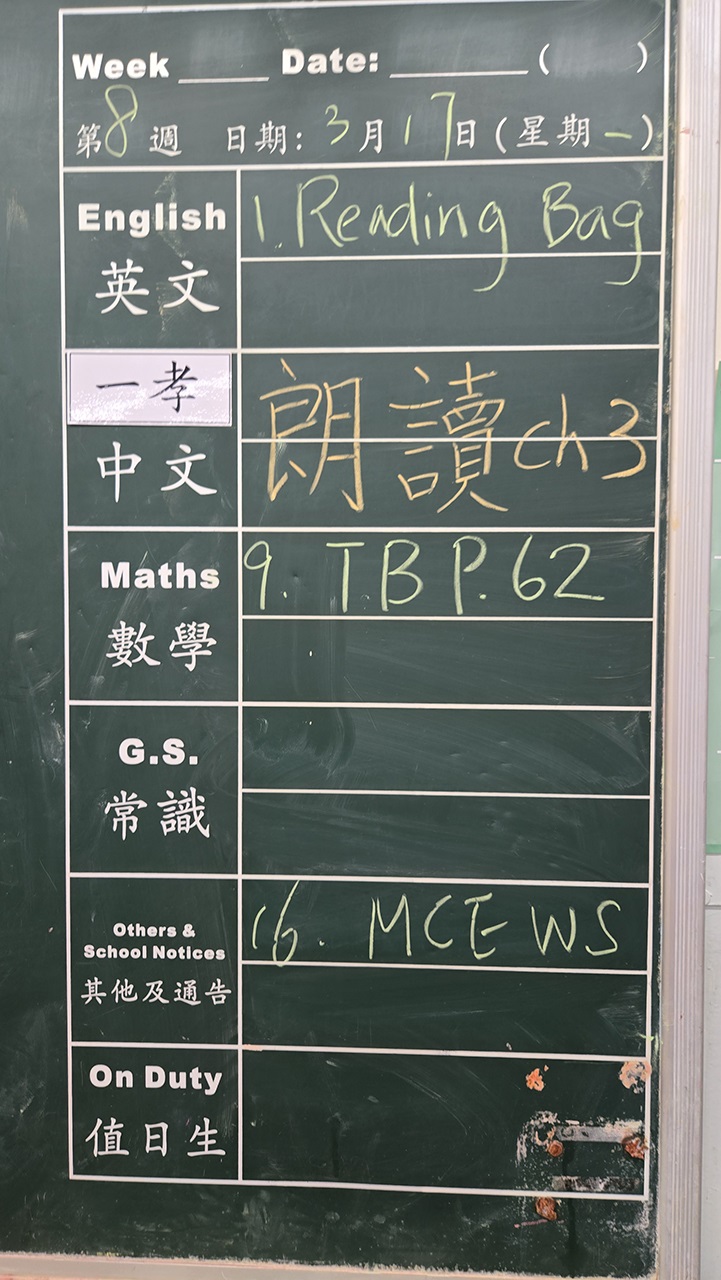 Week ______ Date: _________ ( )
第8週 日期: 3月17日(星期一)
English 1. Reading Bag
英文
一孝
朗讀 ch 3
中文
Maths 9. T.B P. 62
數學
G.S.
常識
Others & 16. MCE WS
School Notices
其他及通告
On Duty
值日生